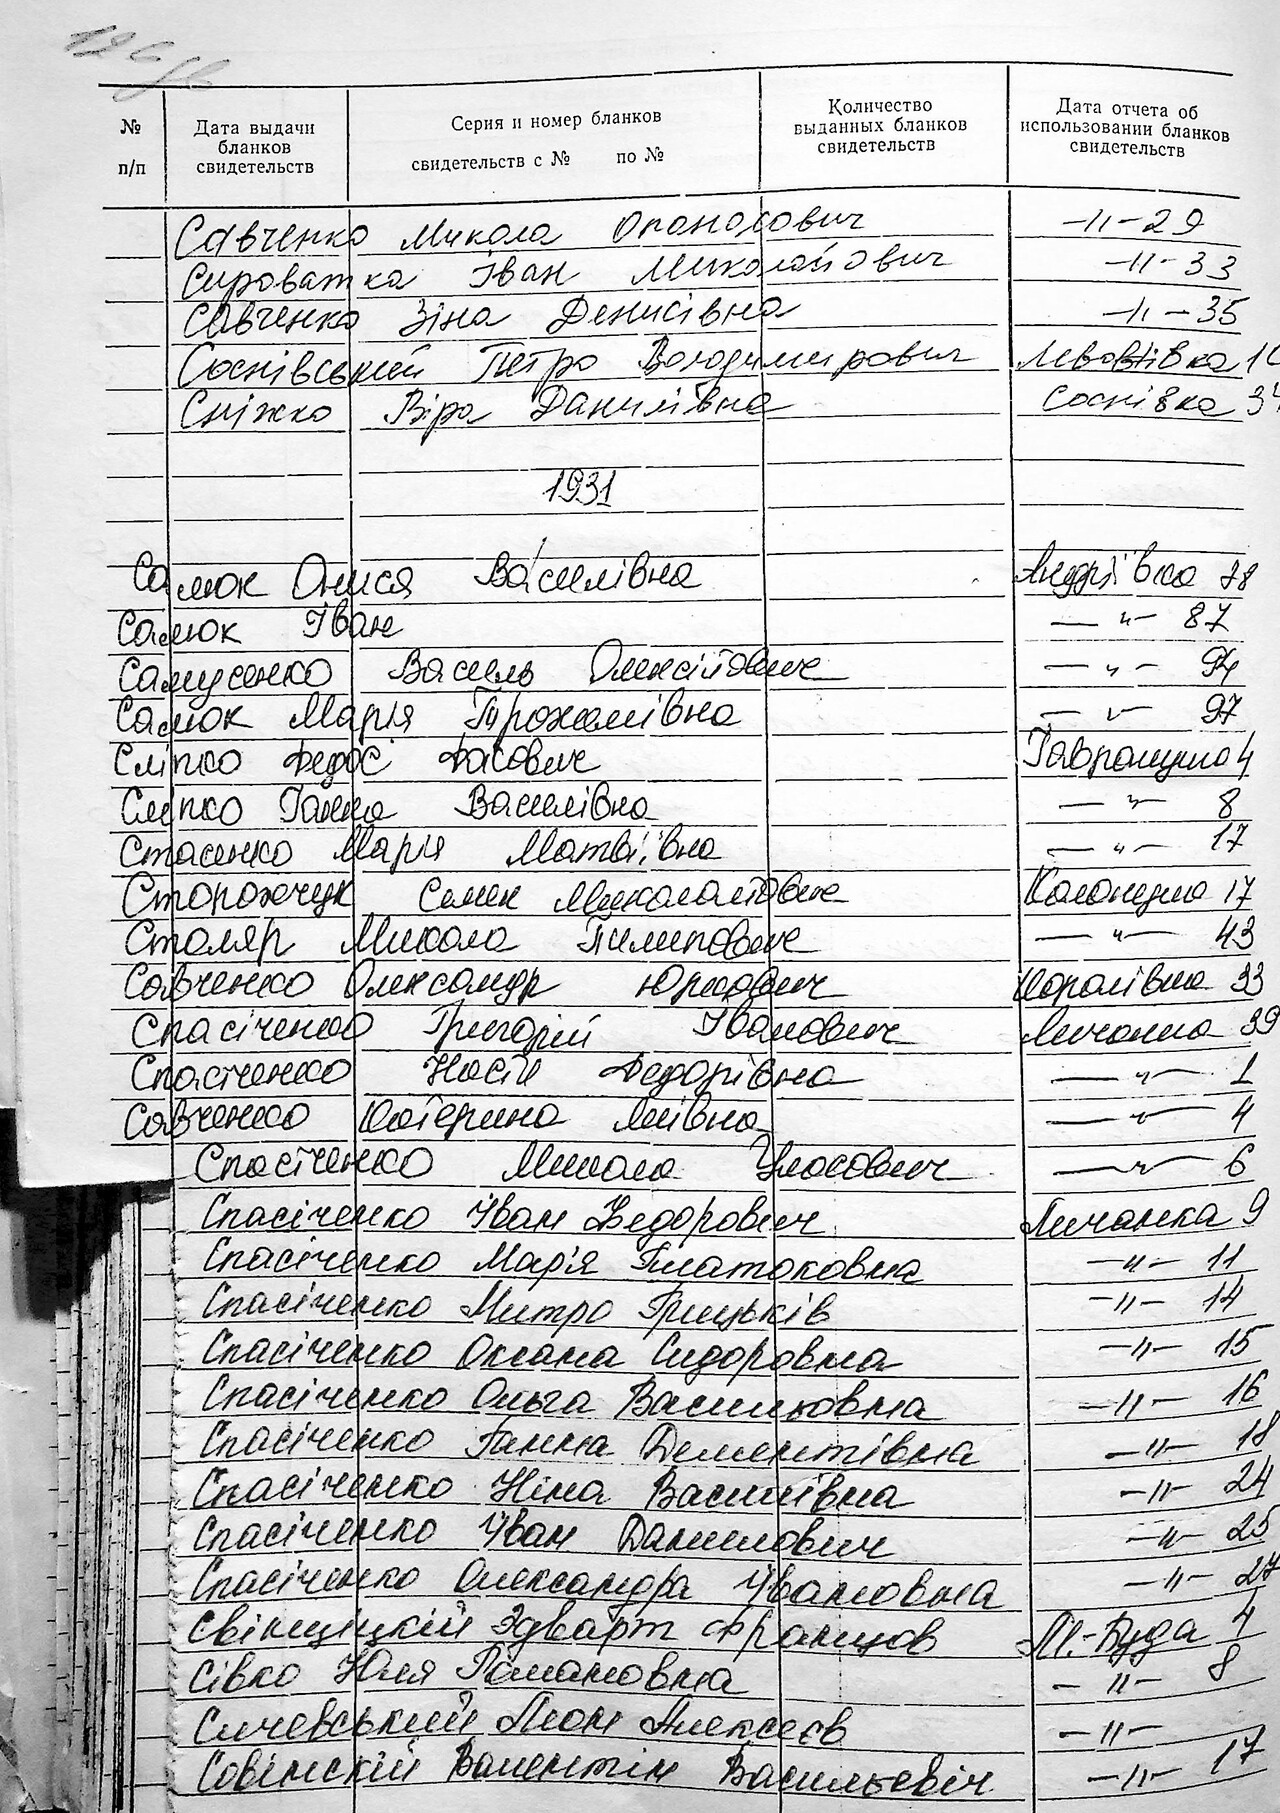 № п/п
Дата выдачи бланков свидетельств
Серия и номер бланков свидетельств с № по №
Количество выданных бланков свидетельств
Дата отчета об использовании бланков свидетельств
Савченко Микола Опанасович -"- 29
Сироватка Іван Миколайович -"- 33
Савченко Зіна Денисівна -"- 35
Соснівський Петро Володимирович
Сніжко Віра Данилівна Соснівка
1931
Самюк Онися Василівна Андріївка
Самюк Іван -"- 87
Самусенко Василь Олексійович -"- 94
Самюк Марія Трохимівна -"- 97
Сліпко Федос Гавронщина 4
Сліпко Ганна Василівна -"- 8
Стасенко Марія Матвіївна -"- 17
Сторожчук Семен Миколайович Колонщина 17
Столяр Микола Пилипович -"- 43
Савченко Олександр Юркович Королівка 33
Спасіченко Григорій Іванович Личанка 39
Спасіченко Настя Федорівна -"- 1
Савченко Катерина -"- 4
Спасіченко Микола Уласович -"- 6
Спасіченко Іван Федорович Личанка 9
Спасіченко Мар'я Платоковна -"- 11
Спасіченко Митро Грицьків -"- 14
Спасіченко Оксана Сидоровна -"- 15
Спасіченко Ольга Васильовна -"- 16
Спасіченко Ганна Дементівна -"- 18
Спасіченко Ніна Василівна -"- 24
Спасіченко Іван Данилович -"- 25
Спасіченко Олександра Івановна -"- 27
Свінціцкій Эдварт Францов М.-Буда 4
Сівко Юля Романовна -"- 8
Сичевський Леон Алексеєв -"-
Совінскій Валентін Васильевіч -"- 17